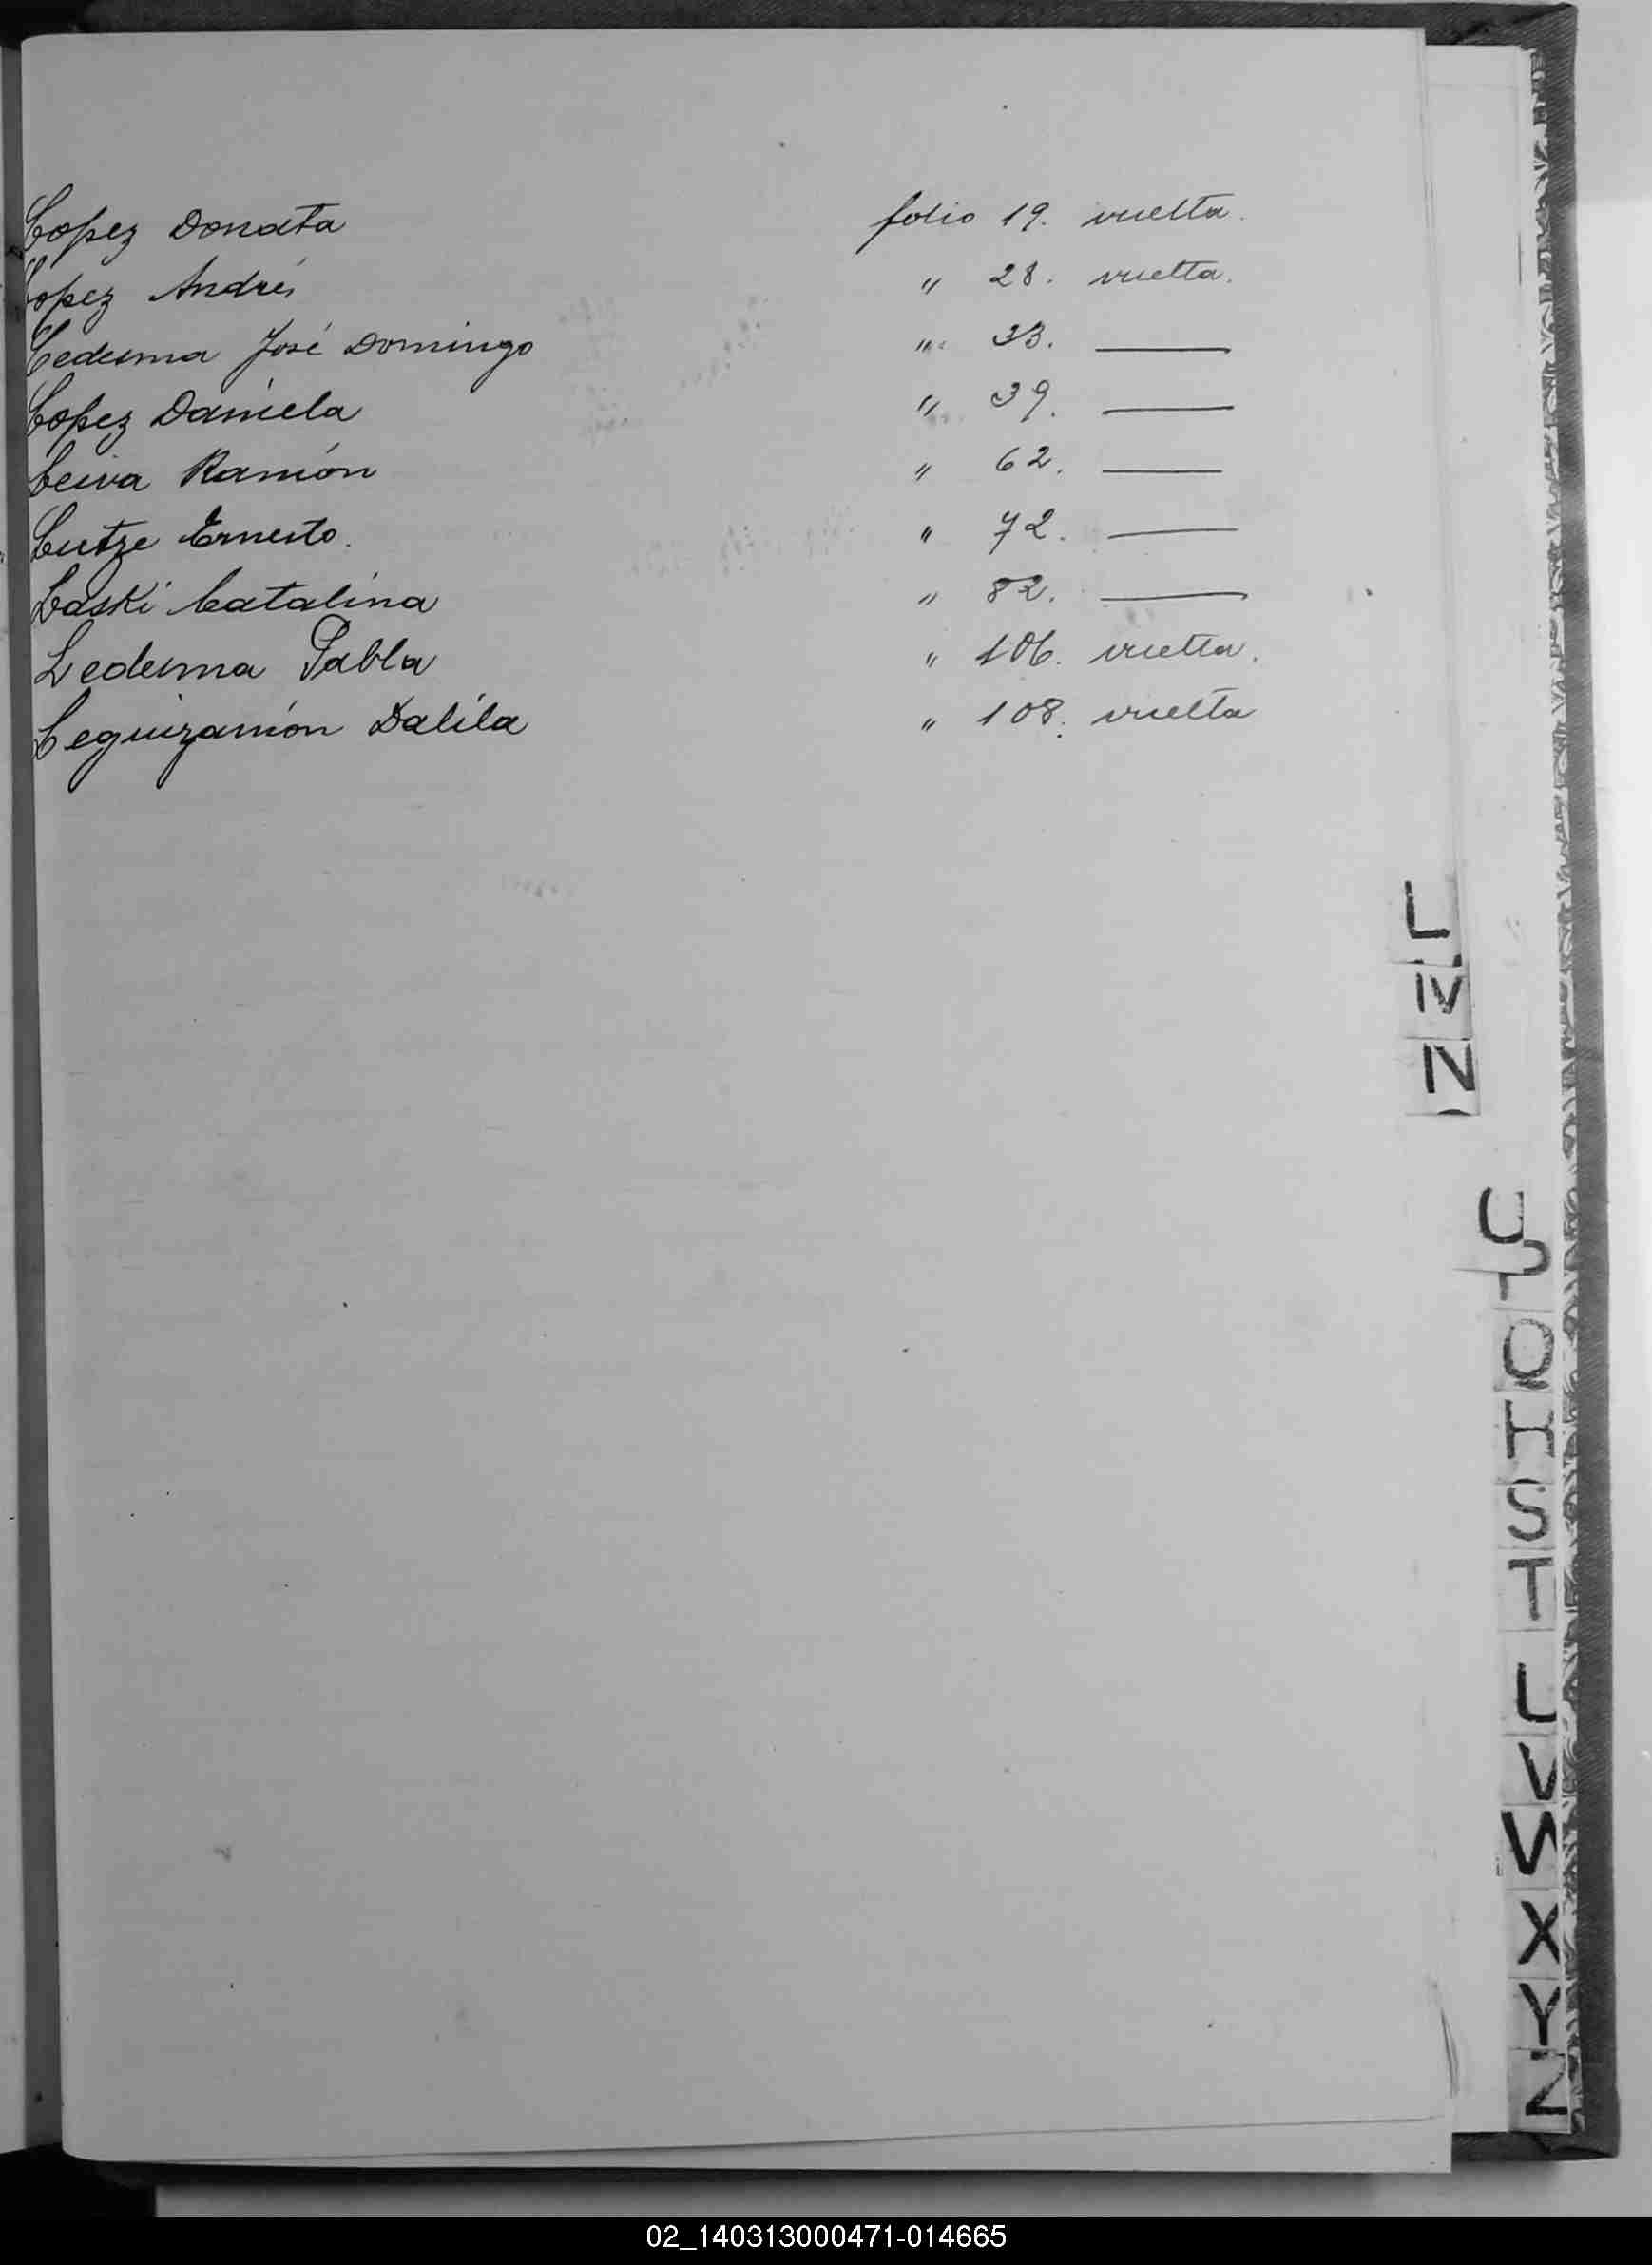 Lopez Donata folio 19. vuelta.
Lopez Andrés " 28. vuelta.
Ledesma José Domingo " 33. ———
Lopez Daniela " 39. ———
Leiva Ramón " 62. ———
Lutze Ernesto. " 72. ———
Laski Catalina " 82. ———
Ledesma Pabla " 106. vuelta.
Leguizamón Dalila " 108. vuelta
L
M
N
O
Q
S
T
V
W
X
Y
Z
02_140313000471-014665